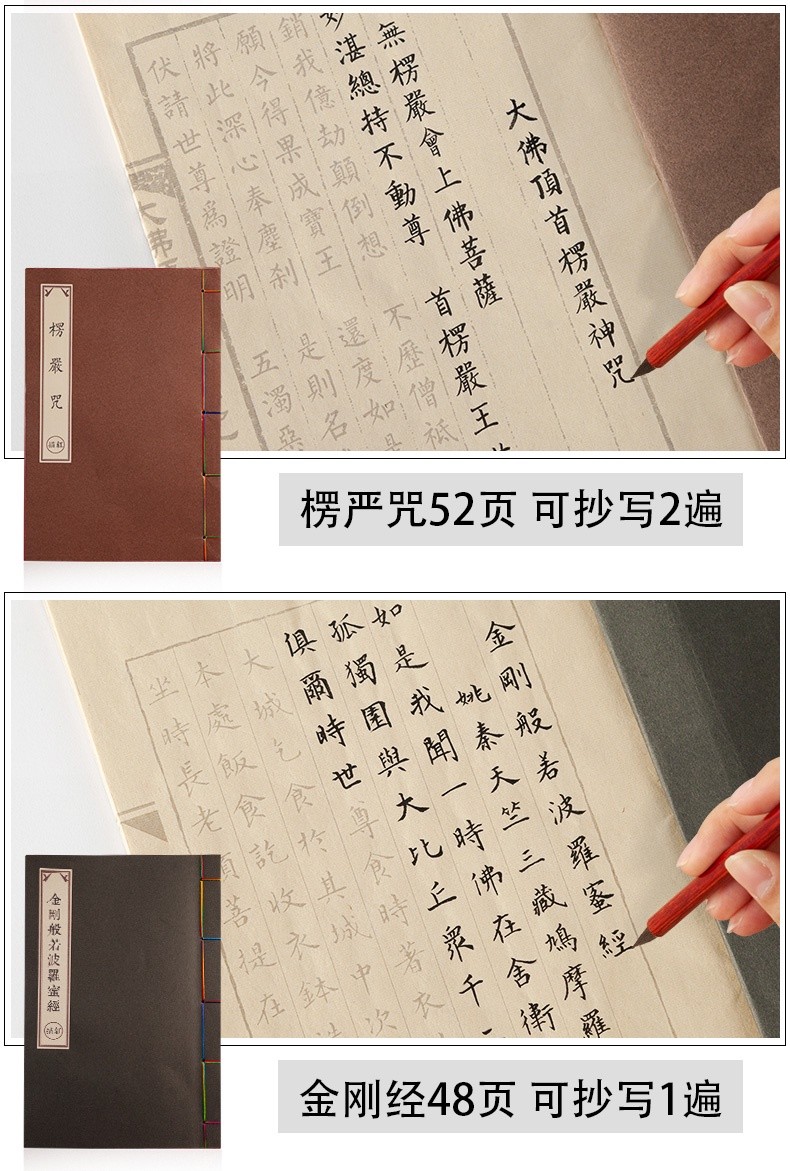 大佛頂首楞嚴神咒
無楞嚴會上佛菩薩
妙湛總持不動尊 首楞嚴王
銷我億劫顛倒想 不歷僧祗
願今得果成寶王 還度如是
將此深心奉塵刹 是則名
伏請世尊為證明 五濁惡
大佛
楞嚴咒
楞严咒52页 可抄写2遍
金剛般若波羅蜜經
姚秦天竺三藏鳩摩羅
如是我聞一時佛在舍衛
孤獨園與大比丘眾千
俱爾時世尊食時著衣
大城乞食於其城中次
本處飯食訖收衣鉢
坐時長老須菩提在
金剛般若波羅蜜經
金刚经48页 可抄写1遍